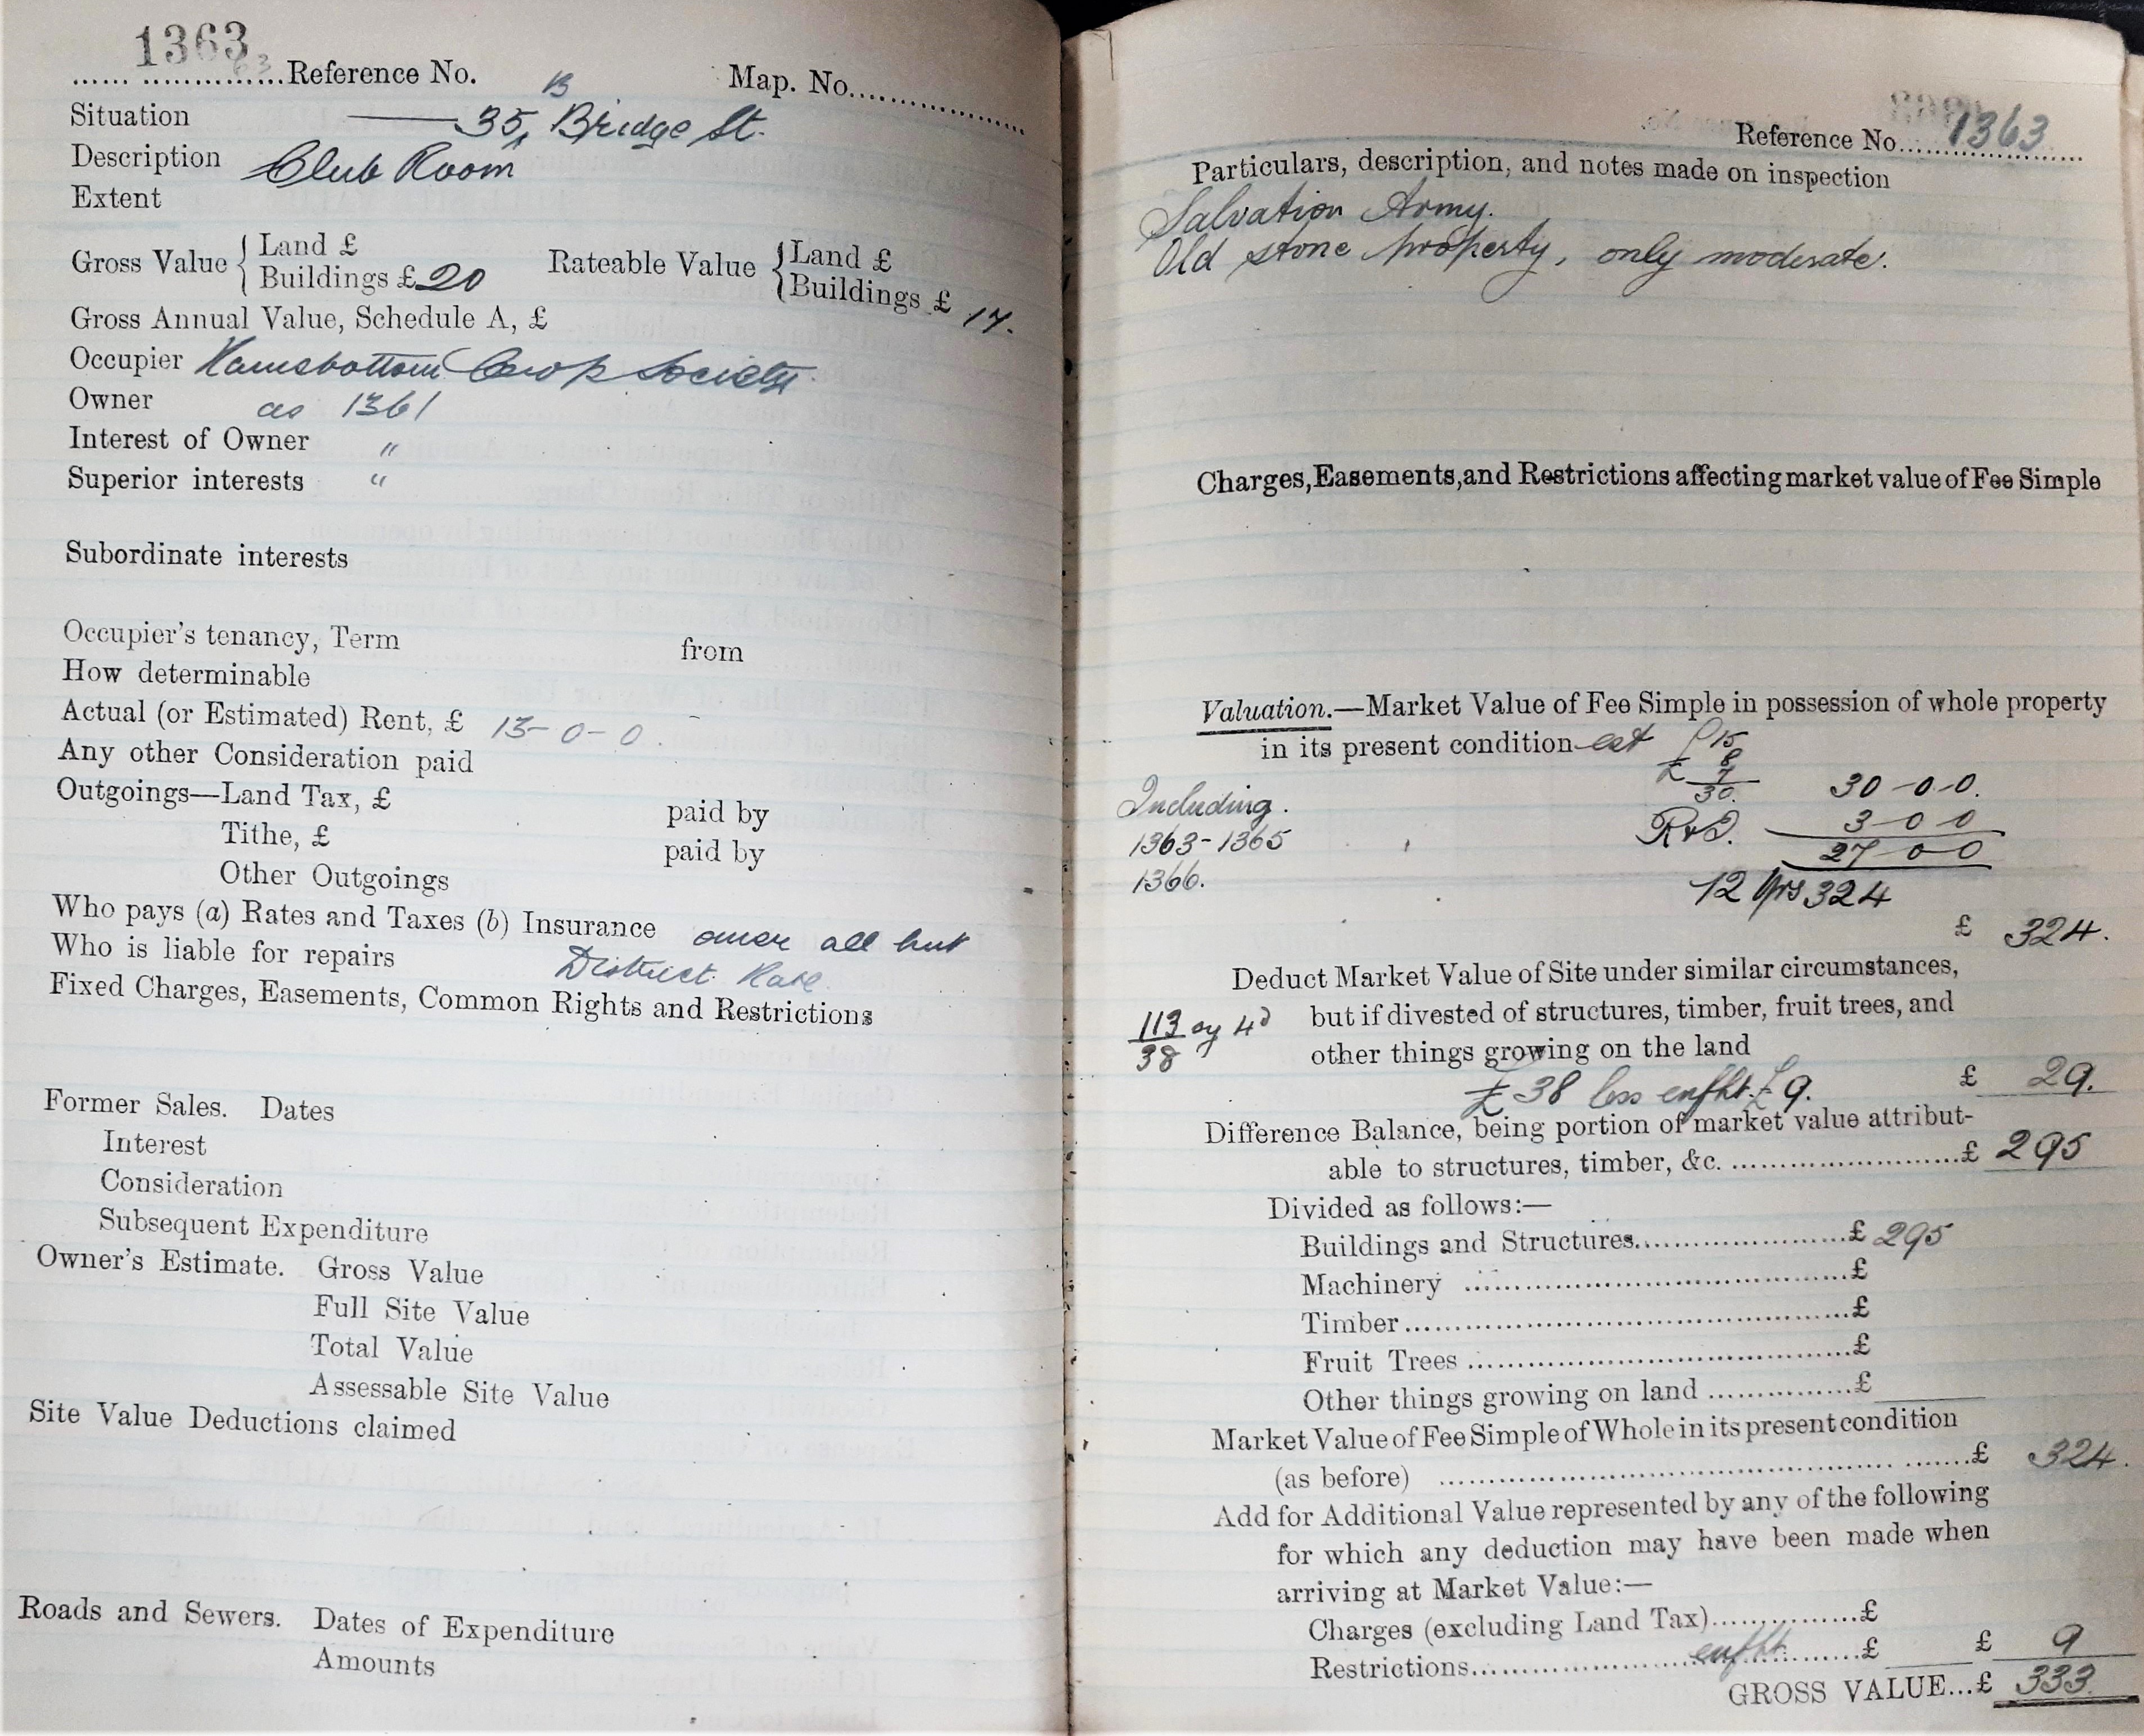 1363
Reference No. Map. No.
Situation 35 B Bridge St.
Description Club Room
Extent
Gross Value { Land £ Rateable Value { Land £
Buildings £ 20 Buildings £ 17.
Gross Annual Value, Schedule A, £
Occupier Ramsbottom Coop Society
Owner as 1361
Interest of Owner "
Superior interests "
Subordinate interests
Occupier's tenancy, Term from
How determinable
Actual (or Estimated) Rent, £ 13-0-0.
Any other Consideration paid
Outgoings—Land Tax, £ paid by
Tithe, £ paid by
Other Outgoings
Who pays (a) Rates and Taxes (b) Insurance owner all but
Who is liable for repairs District Rate
Fixed Charges, Easements, Common Rights and Restrictions
Former Sales. Dates
Interest
Consideration
Subsequent Expenditure
Owner's Estimate. Gross Value
Full Site Value
Total Value
Assessable Site Value
Site Value Deductions claimed
Roads and Sewers. Dates of Expenditure
Amounts
Reference No. 1363
Particulars, description, and notes made on inspection
Salvation Army.
Old stone property, only moderate.
Charges, Easements, and Restrictions affecting market value of Fee Simple
Valuation.—Market Value of Fee Simple in possession of whole property
in its present condition est £15
8
£ 7
30. 30-0-0.
Including.
1363-1365 R&I. 3 0 0
27-0-0
1366. 12 yrs 324
£ 324.
Deduct Market Value of Site under similar circumstances,
but if divested of structures, timber, fruit trees, and
113 sy 4d
38
other things growing on the land
£38 less enfht. £9. £ 29.
Difference Balance, being portion of market value attribut-
able to structures, timber, &c. £ 295
Divided as follows:—
Buildings and Structures £ 295
Machinery £
Timber £
Fruit Trees £
Other things growing on land £
Market Value of Fee Simple of Whole in its present condition
(as before) £ 324.
Add for Additional Value represented by any of the following
for which any deduction may have been made when
arriving at Market Value:—
Charges (excluding Land Tax) £
Restrictions enfht. £ £ 9
GROSS VALUE...£ 333.